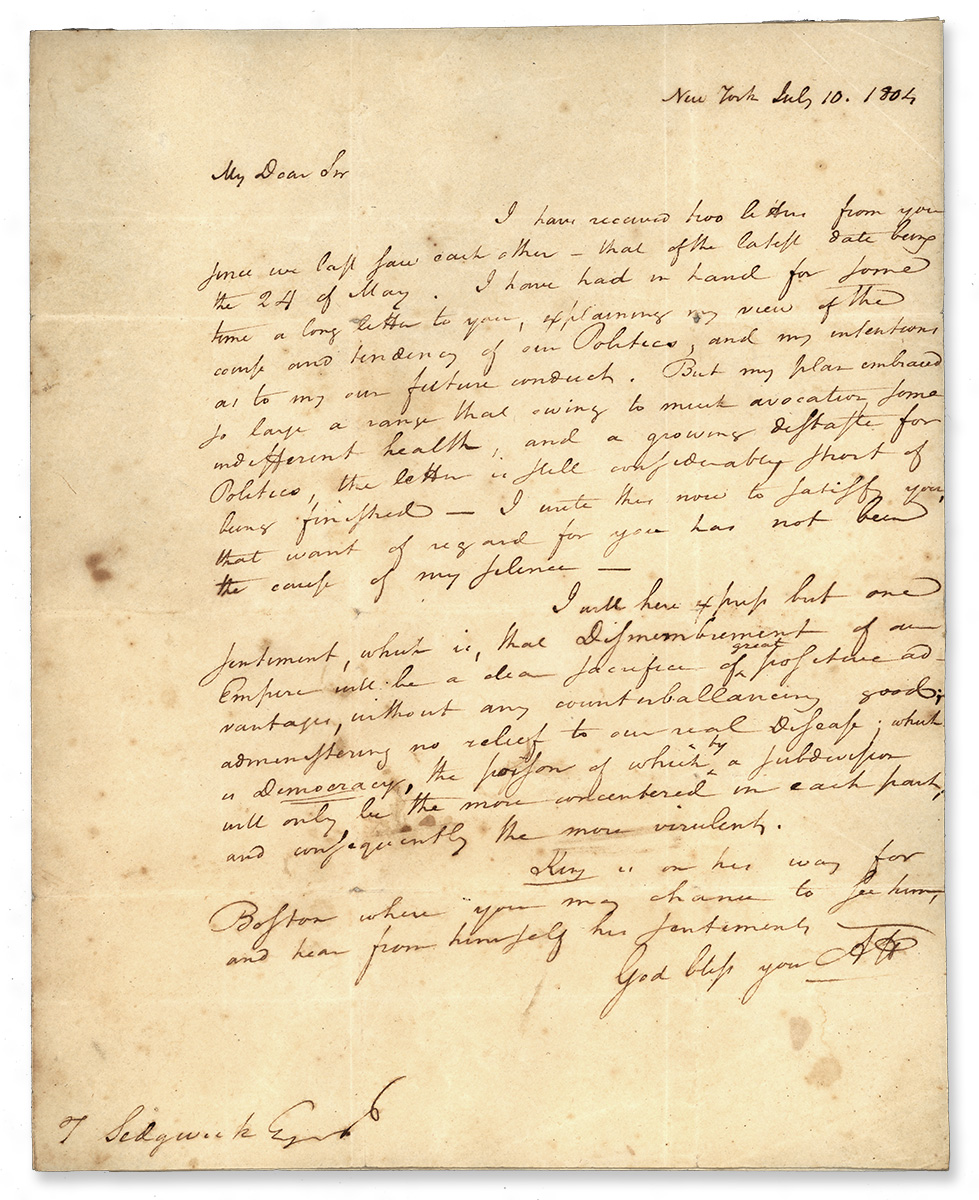 New York July 10. 1804
My Dear Sir
I have received two letters from you
since we last saw each other – that of the latest date being
the 24 of May. I have had in hand for some
time a long letter to you, explaining my view of the
course and tendency of our Politics, and my intentions
as to my own future conduct. But my plan embraced
so large a range that owing to much avocation, some
indifferent health, and a growing distaste for
Politics, the letter is still considerably short of
being finished — I write this now to satisfy you,
that want of regard for you has not been
the cause of my silence —
I will here express but one
sentiment, which is, that Dismembrement of our
Empire will be a clear sacrifice of great positive ad-
vantages, without any counterballancing good;
administering no relief to our real Disease; which
is Democracy, the poison of which by a subdivision
will only be the more concentered in each part,
and consequently the more virulent.
King is on his way for
Boston where you may chance to see him,
and hear from himself his sentiments
God bless you AH
T Sedgwick Esqr